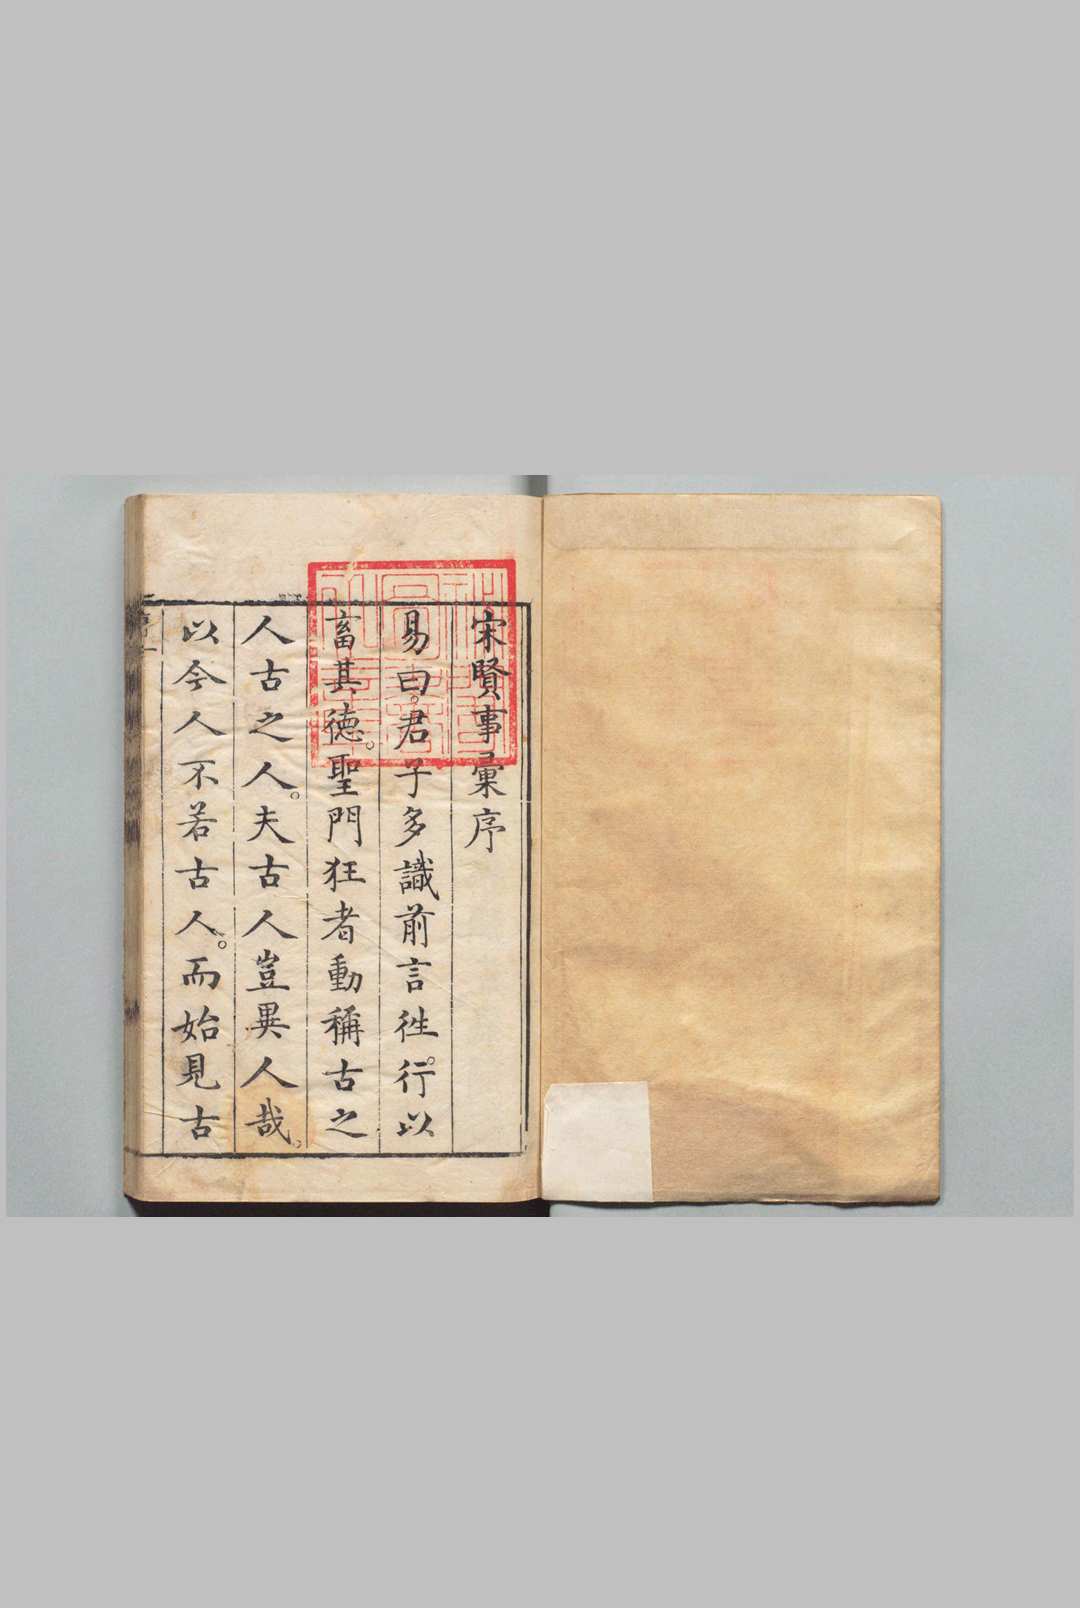 宋賢事彙序
易曰。君子多識前言徃行。以
畜其德。聖門狂者動稱古之
人古之人。夫古人豈異人哉。
以今人不若古人。而始見古